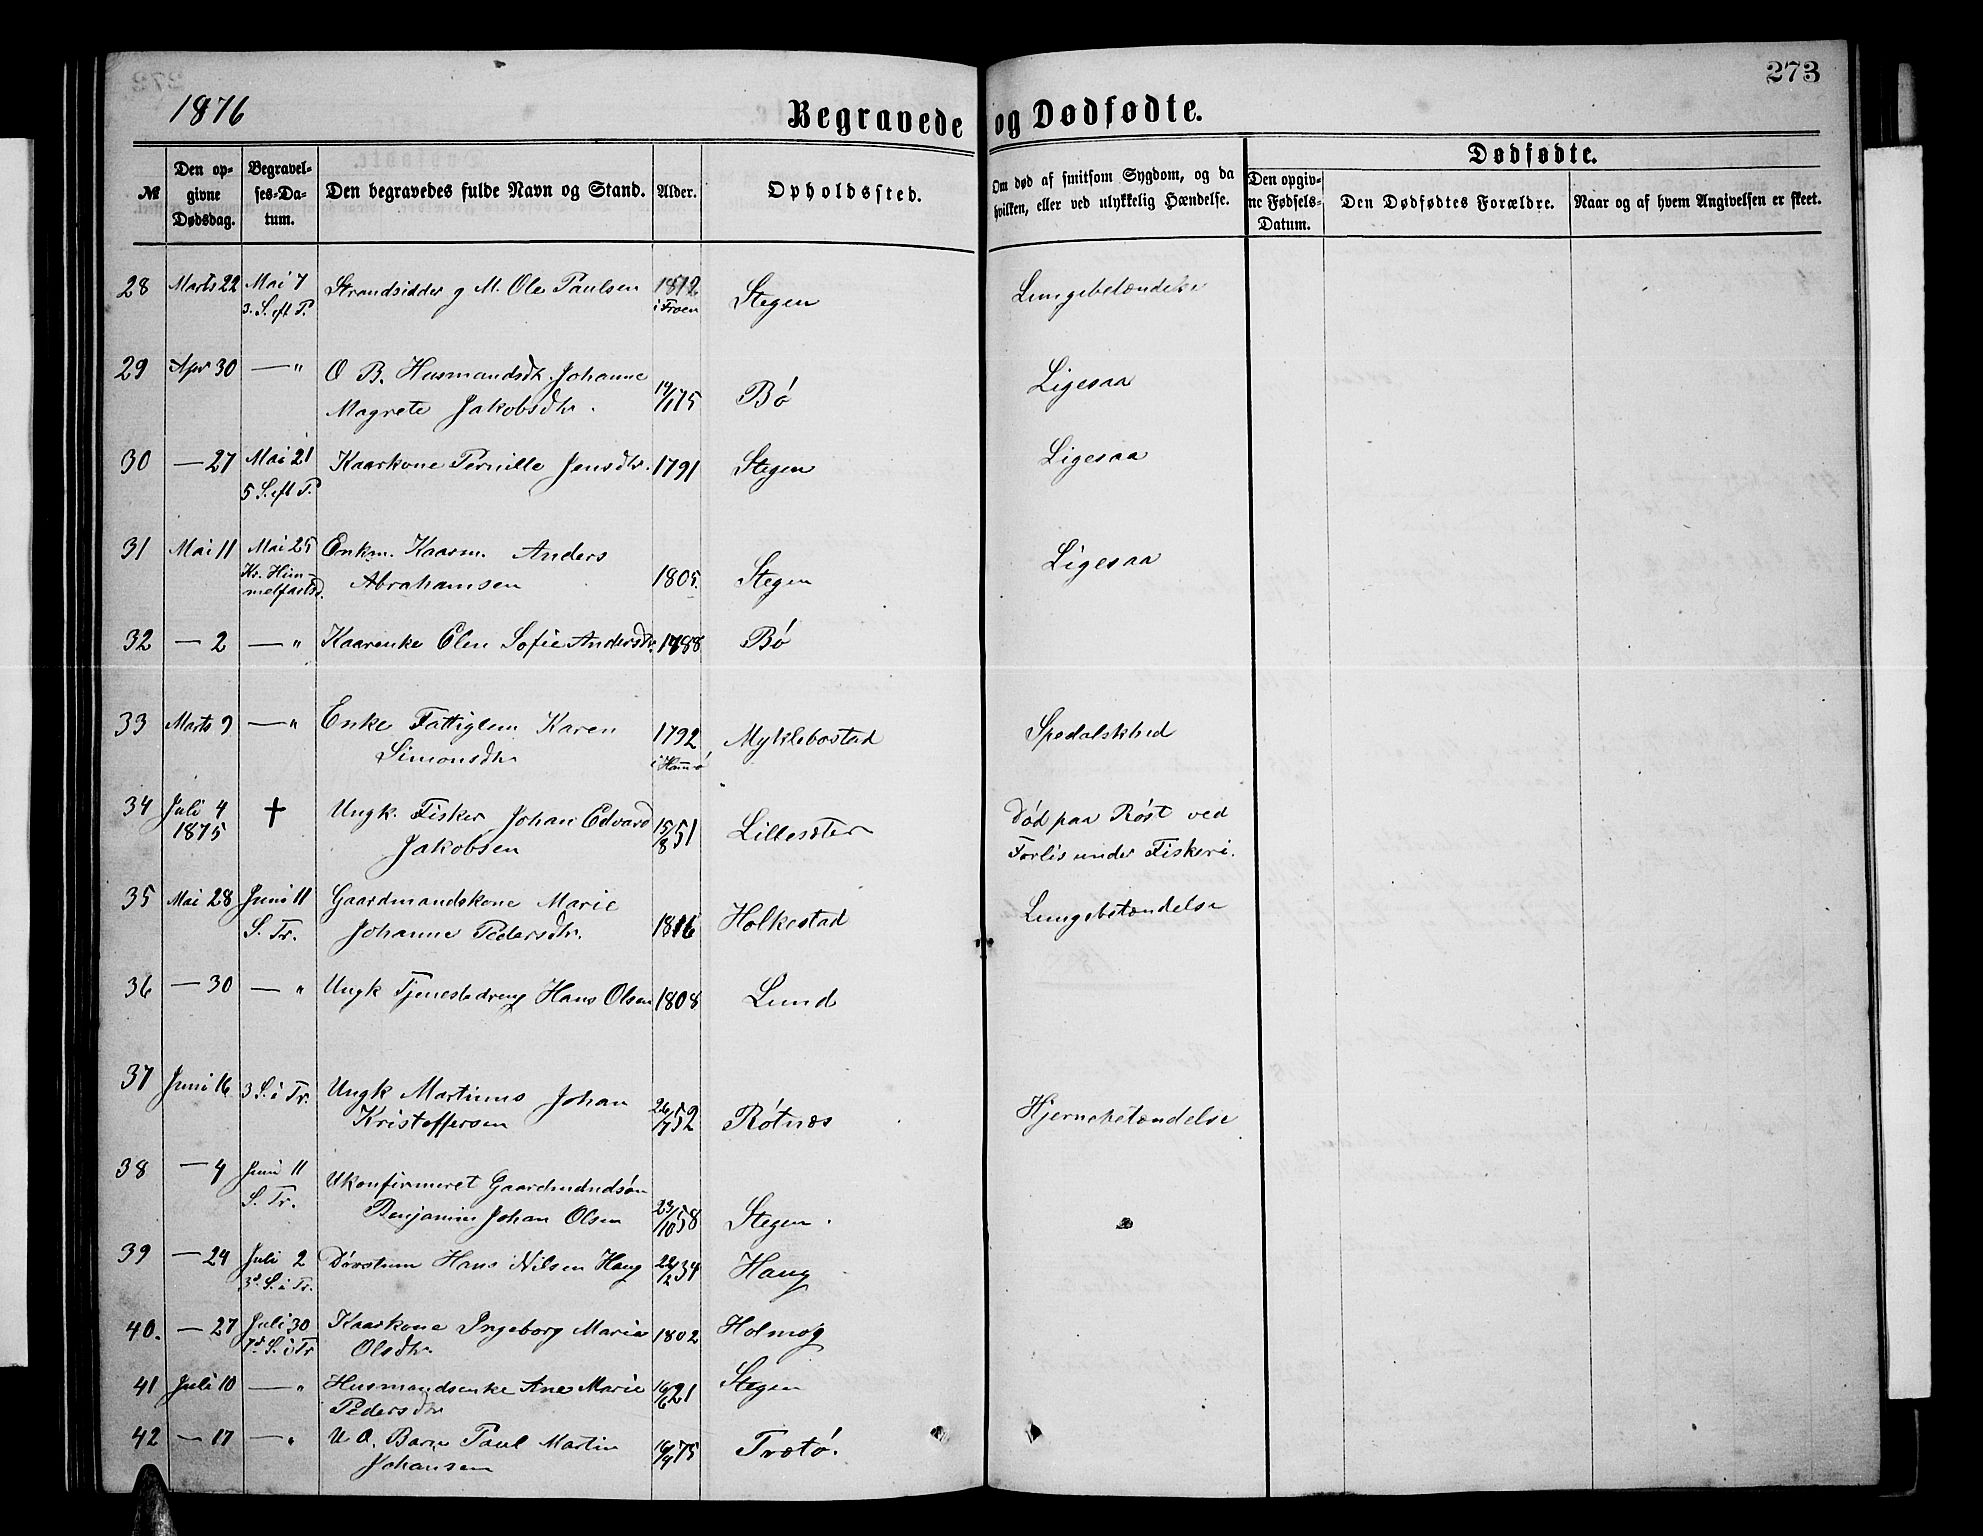 273
1876
Begravede og Dødfødte.
№
Den opgivne Dødsdag.
Begravelses-Datum.
Den begravedes fulde Navn og Stand.
Alder.
Opholdssted.
Om død af smitsom Sygdom, og da hvilken, eller ved ulykkelig Hændelse.
Dødfødte.
Den opgivne Fødsels-Datum.
Den Dødfødtes Forældre.
Naar og af hvem Angivelsen er skeet.
28 Marts 22 Mai 7 Strandsidder g M. Ole Paulsen 1812 Stegen Lungebetændelse
3. S. eft P. i Froen
29 Apr 30 — " O B. Husmandsdtr. Johanne Bø Ligesaa
Magrete Jakobsdtr. 14/1 75
30 — 27 Mai 21 Kaarkone Pernille Jensdtr. 1791 Stegen Ligesaa
5 S. eft P.
31 Mai 11 Mai 25 Enkm. Kaarm. Anders Ligesaa
Kr. Himmelfartsd. Abrahamsen 1805. Stegen
32 — 2 — " Kaarenke Elen Sofie Andersdtr. 1788 Bø
33 Marts 9 — " Enke Fattiglem Karen 1792 Myklebostad Spedalskhed
Simonsdtr i Hammø
34 Juli 4 † Ungk. Fisker Johan Edvard 15/8 51 Lillesæter Død paa Røst ved
1875 Jakobsen Forlis under Fiskeri.
35 Mai 28 Juni 11 Gaardmandskone Marie Lungebetændelse
S. Tr. Johanne Pedersdtr. 1816 Holkestad
36 — 30 — " Ungk Tjenestedreng Hans Olsen 1808 Lund
37 Juni 16 3 S. i Tr. Ungk Martinus Johan Hjernebetændelse
Kristoffersen 26/7 52 Røtnæs
38 — 4 Juni 11 Ukonfirmeret Gaardmandssøn
S. Tr. Benjamin Johan Olsen 23/10 58 Stegen.
39 — 24 Juli 2 Døvstum Hans Nilsen Haug 22/2 34 Haug
3d. S. i Tr.
40. — 27 Juli 30 Kaarkone Ingeborg Maria 1802 Holmog
7d. S. i Tr Olsdtr.
41 Juli 10 — " Husmandsenke Ane Marie 16/6 21 Stegen
Pedersdtr
42 — 17 — " U O. Barn Paul Martin 16/9 75 Trætø.
Johansen